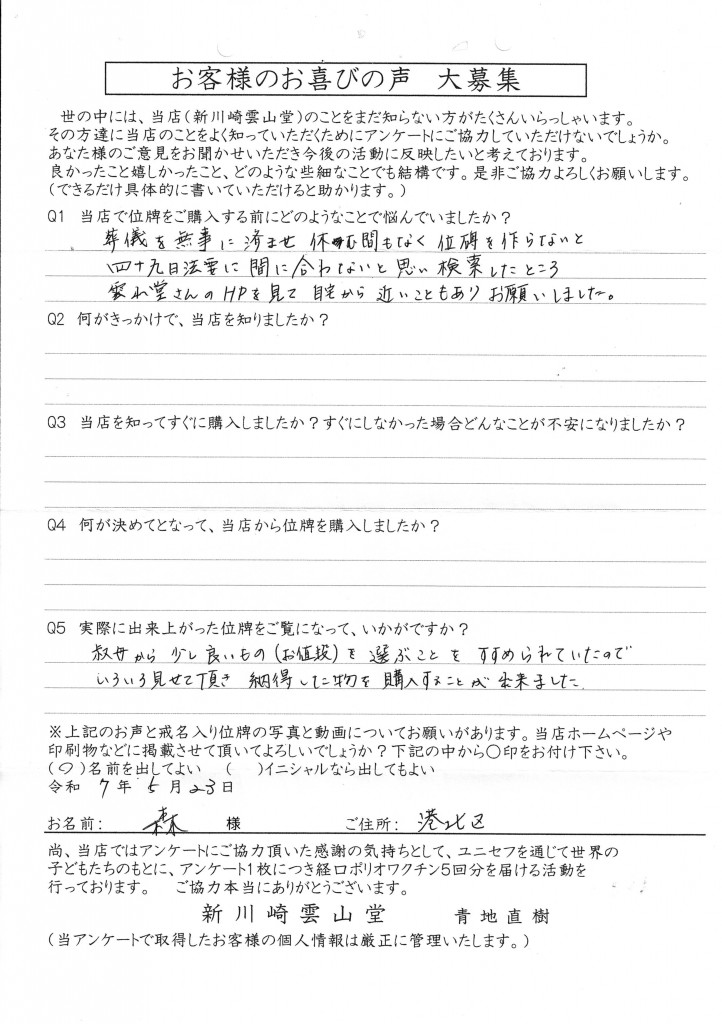 お客様のお喜びの声 大募集
世の中には、当店(新川崎雲山堂)のことをまだ知らない方がたくさんいらっしゃいます。
その方達に当店のことをよく知っていただくためにアンケートにご協力していただけないでしょうか。
あなた様のご意見をお聞かせいただき今後の活動に反映したいと考えております。
良かったこと嬉しかったこと、どのような些細なことでも結構です。是非ご協力よろしくお願いします。
(できるだけ具体的に書いていただけると助かります。)
Q1 当店で位牌をご購入する前にどのようなことで悩んでいましたか?
葬儀を無事に済ませ 休む間もなく 位碑を作らないと
四十九日法要に 間に合わないと思い 検索したところ
雲山堂さんのHPを見て 自宅から 近いこともあり お願いしました。
Q2 何がきっかけで、当店を知りましたか?
Q3 当店を知ってすぐに購入しましたか?すぐにしなかった場合どんなことが不安になりましたか?
Q4 何が決めてとなって、当店から位牌を購入しましたか?
Q5 実際に出来上がった位牌をご覧になって、いかがですか?
叔母から 少し良いもの(お値段)を 選ぶことを すすめられていたので
いろいろ見せて頂き 納得した物を購入することが出来ました
※上記のお声と戒名入り位牌の写真と動画についてお願いがあります。当店ホームページや
印刷物などに掲載させて頂いてよろしいでしょうか?下記の中から〇印をお付け下さい。
(〇)名前を出してよい ( )イニシャルなら出してもよい
令和 7年 5月 23日
お名前: 森 様 ご住所: 港北区
尚、当店ではアンケートにご協力頂いた感謝の気持ちとして、ユニセフを通じて世界の
子どもたちのもとに、アンケート1枚につき経口ポリオワクチン5回分を届ける活動を
行っております。 ご協力本当にありがとうございます。
新川崎雲山堂 青地直樹
(当アンケートで取得したお客様の個人情報は厳正に管理いたします。)